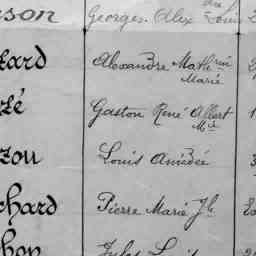 son Georges Alex dre Louis 2
ard Alexandre Mathrin
Marie
zé Gaston René Albert 1
Mie
zou Louis Amédée 3
chard Pierre Marie Jh
hon Jules